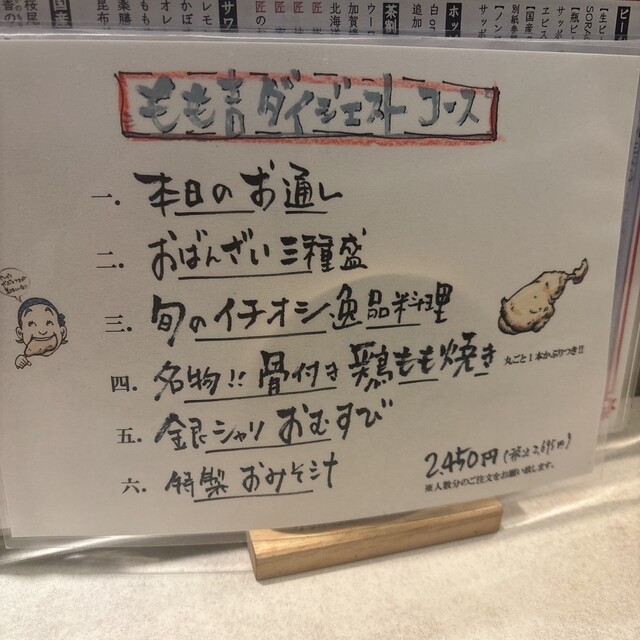 もも吉ダイジェストコース
一. 本日のお通し
二. おばんざい三種盛
三. 旬のイチオシ逸品料理
四. 名物!! 骨付き鶏もも焼き 丸ごと1本かぶりつき!!
五. 銀シャリ おむすび
六. 特製 おみそ汁
2,450円(税込2,695円)
※人数分のご注文をお願い致します。